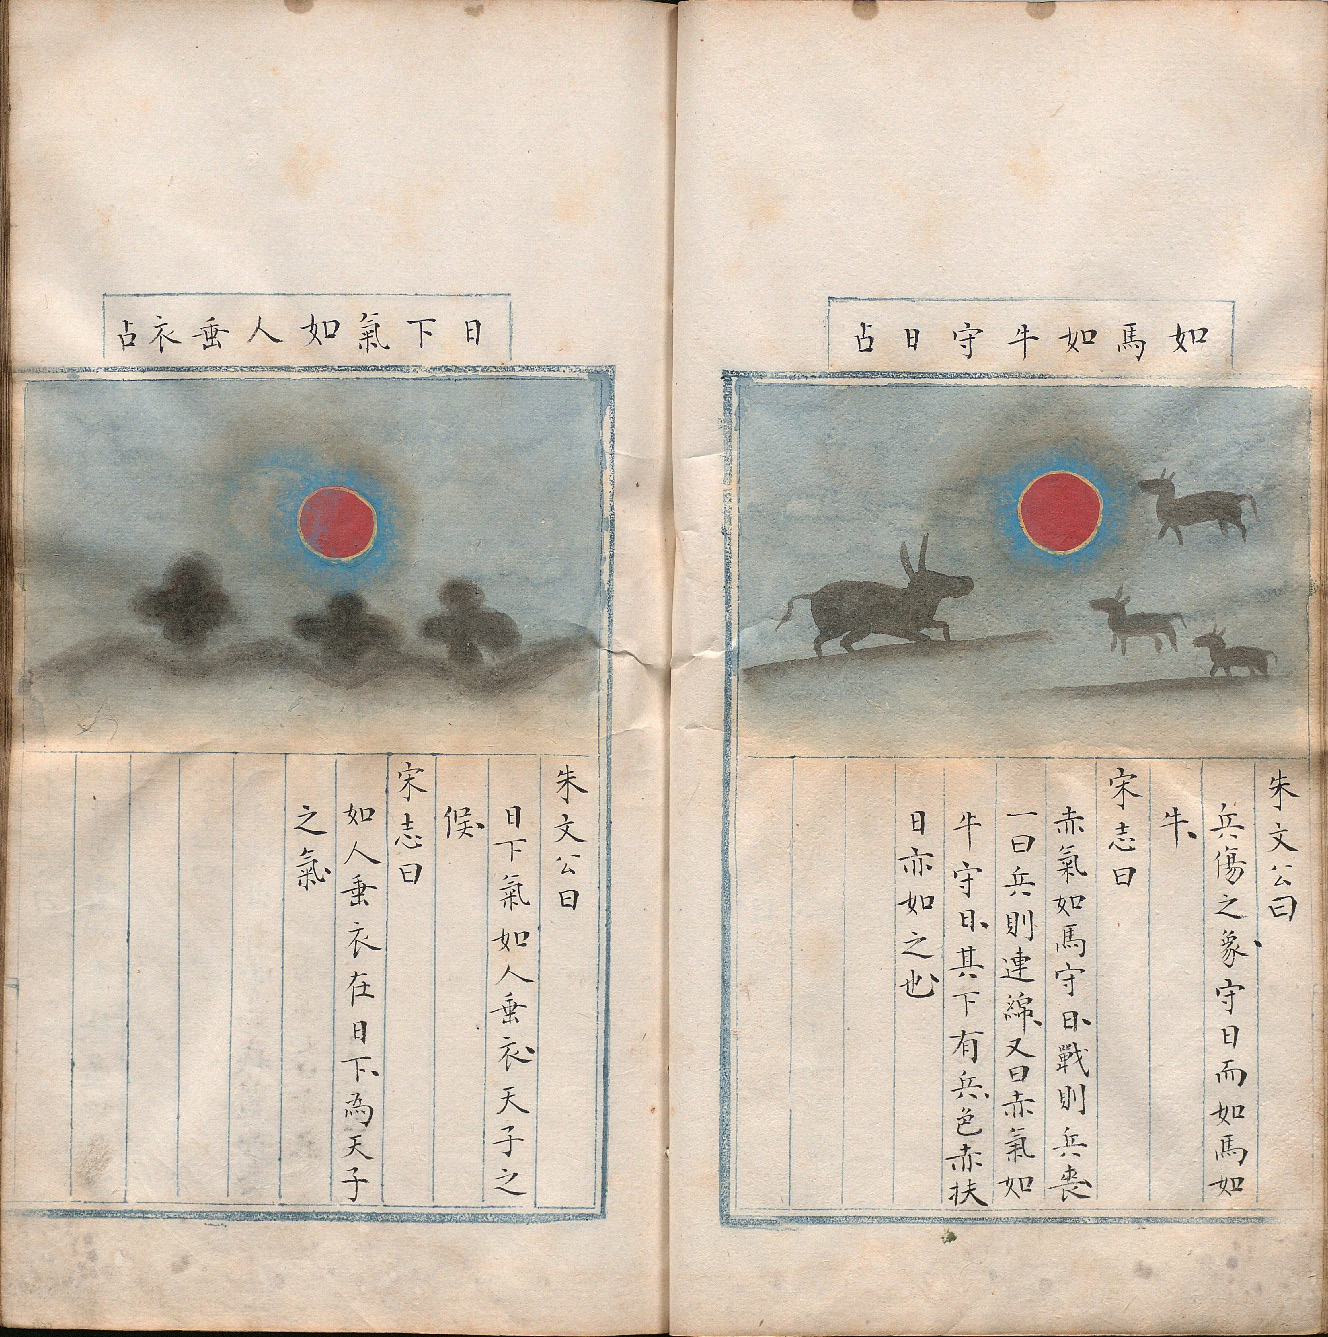 如馬如牛守日占
朱文公曰
兵傷之象守日而如馬如
牛
宋志曰
赤氣如馬守日戰則兵喪
一曰兵則連綿又曰赤氣如
牛守日其下有兵色赤扶
日亦如之也
日下氣如人垂衣占
朱文公曰
日下氣如人垂衣天子之
候
宋志曰
如人垂衣在日下為天子
之氣